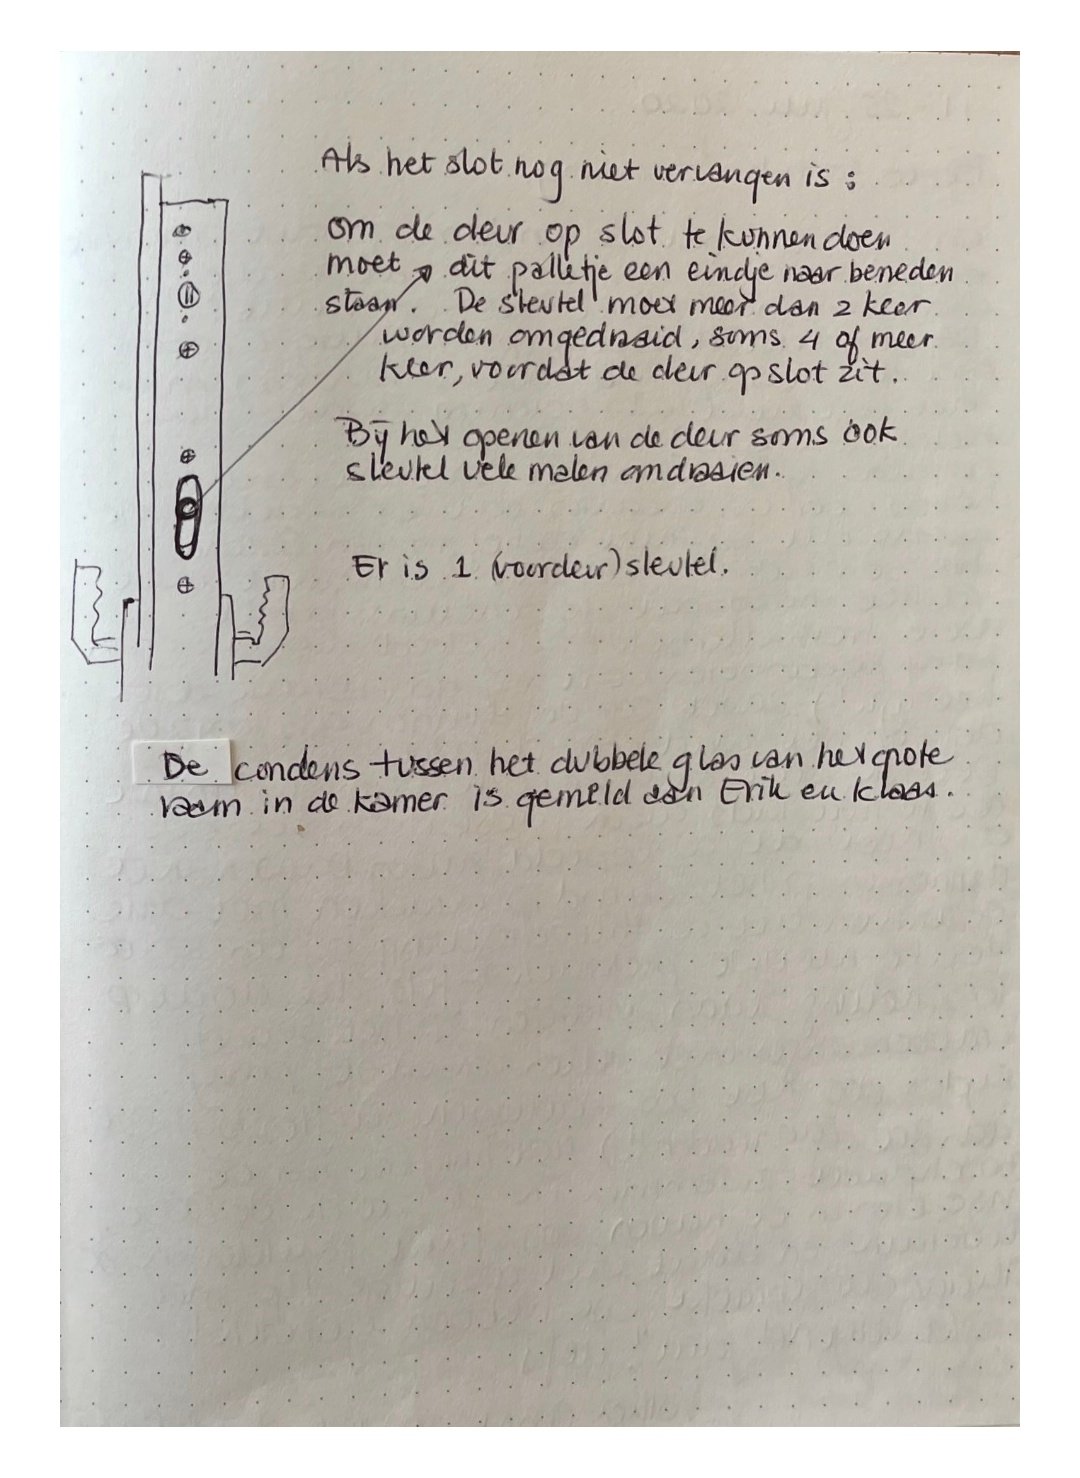 Als het slot nog niet vervangen is :
om de deur op slot te kunnen doen
moet dit palletje een eindje naar beneden
staan. De sleutel moet meer dan 2 keer
worden omgedraaid, soms 4 of meer
keer, voordat de deur op slot zit.
Bij het openen van de deur soms ook
sleutel vele malen omdraaien.
Er is 1 (voordeur)sleutel.
De condens tussen het dubbele glas van het grote
raam in de kamer is gemeld aan Erik en Klaas.